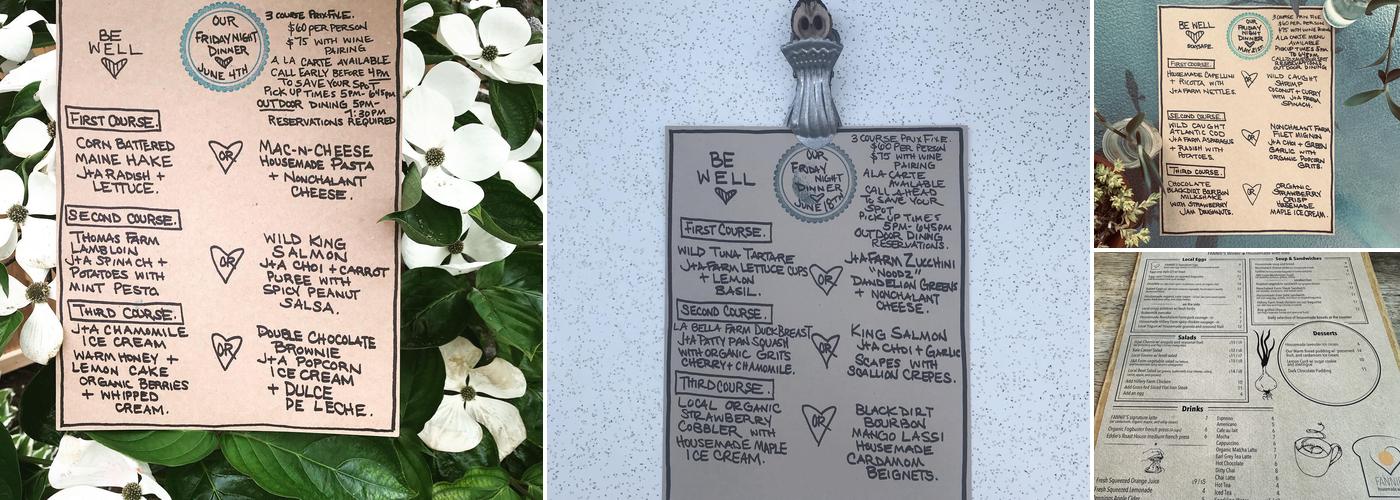 BE
WELL
OUR
FRIDAY NIGHT
DINNER
JUNE 4TH
3 COURSE PRIX FIXE.
$60 PER PERSON
$75 WITH WINE
PAIRING
A LA CARTE AVAILABLE
CALL EARLY BEFORE 4PM
TO SAVE YOUR SPOT
PICK UP TIMES 5PM-645PM
OUTDOOR DINING 5PM-
7:30PM
RESERVATIONS REQUIRED
FIRST COURSE.
CORN BATTERED
MAINE HAKE
J+A RADISH +
LETTUCE.
OR
MAC-N-CHEESE
HOUSEMADE PASTA
+ NONCHALANT
CHEESE.
SECOND COURSE.
THOMAS FARM
LAMB LOIN
J+A SPINACH +
POTATOES WITH
MINT PESTO
OR
WILD KING
SALMON
J+A CHOI + CARROT
PUREE WITH
SPICY PEANUT
SALSA.
THIRD COURSE.
J+A CHAMOMILE
ICE CREAM
WARM HONEY +
LEMON CAKE
ORGANIC BERRIES
+ WHIPPED
CREAM.
OR
DOUBLE CHOCOLATE
BROWNIE
J+A POPCORN
ICE CREAM
+ DULCE
DE LECHE.
BE
WELL
OUR
FRIDAY
NIGHT
DINNER
JUNE 18TH
3 COURSE PRIX FIXE.
$60 PER PERSON
$75 WITH WINE
PAIRING
A LA CARTE
AVAILABLE
CALL AHEAD
TO SAVE YOUR
SPOT
PICK UP TIMES
5PM-645PM
OUTDOOR DINING
RESERVATIONS.
FIRST COURSE.
WILD TUNA TARTARE
J+A FARM LETTUCE CUPS
+ LEMON
BASIL.
OR
J+A FARM ZUCCHINI
"NOODZ"
DANDELION GREENS
+ NONCHALANT
CHEESE.
SECOND COURSE.
LA BELLA FARM DUCK BREAST
J+A PATTY PAN SQUASH
WITH ORGANIC GRITS
CHERRY + CHAMOMILE.
OR
KING SALMON
J+A CHOI + GARLIC
SCAPES WITH
SCALLION CREPES.
THIRD COURSE.
LOCAL ORGANIC
STRAWBERRY
COBBLER WITH
HOUSEMADE MAPLE
ICE CREAM.
OR
BLACKDIRT
BOURBON
MANGO LASSI
HOUSEMADE
CARDAMOM
BEIGNETS.
BE WELL
OUR
FRIDAY
NIGHT
DINNER
MAY 21ST
3 COURSE PRIX FIXE
$60 PER PERSON
$75 WITH WINE
PAIRING
A LA CARTE MENU
AVAILABLE
PICK UP TIMES 5PM
TO 645PM
OUTDOOR DINING
FIRST COURSE.
HOUSEMADE CAPELLINI
+ RICOTTA WITH
J+A FARM NETTLES.
OR
WILD CAUGHT
SHRIMP
COCONUT + CURRY
WITH J+A FARM
SPINACH.
SECOND COURSE.
WILD CAUGHT
ATLANTIC COD
J+A FARM ASPARAGUS
+ RADISH WITH
POTATOES.
OR
NONCHALANT FARM
FILET MIGNON
J+A CHOI + GREEN
GARLIC WITH
ORGANIC POPCORN
GRITS.
THIRD COURSE.
CHOCOLATE
BLACKDIRT BOURBON
MILKSHAKE
WITH STRAWBERRY
JAM DOUGHNUTS.
OR
ORGANIC
STRAWBERRY
CRISP
HOMEMADE
MAPLE ICE CREAM.
Local Eggs
Soup & Sandwiches
Salads
Add Hillery Farm Chicken
Add Grass Fed Sliced Flat Iron Steak
Add an egg
Desserts
Housemade lavender ice cream
Dark Chocolate Pudding
Drinks
FANNIE's signature latte
Organic Fogbuster french press
Eddie's Roast House medium french press
Espresso
Americano
Cafe au lait
Mocha
Cappuccino
Organic Matcha Latte
Earl Grey Tea Latte
Hot Chocolate
Dirty Chai
Chai Latte
Hot Tea
Iced Tea
Fresh Squeezed Orange Juice
Fresh Squeezed Lemonade